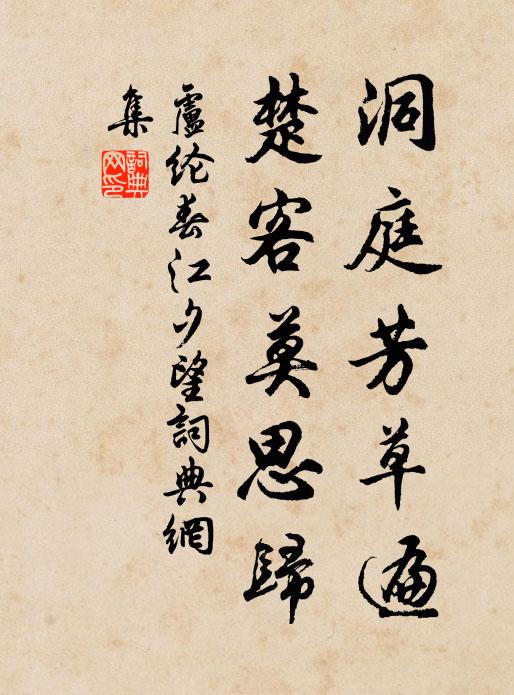 洞庭芳草遍
楚客莫思歸
盧纶春江夕望詞典網
集
詞典
网印